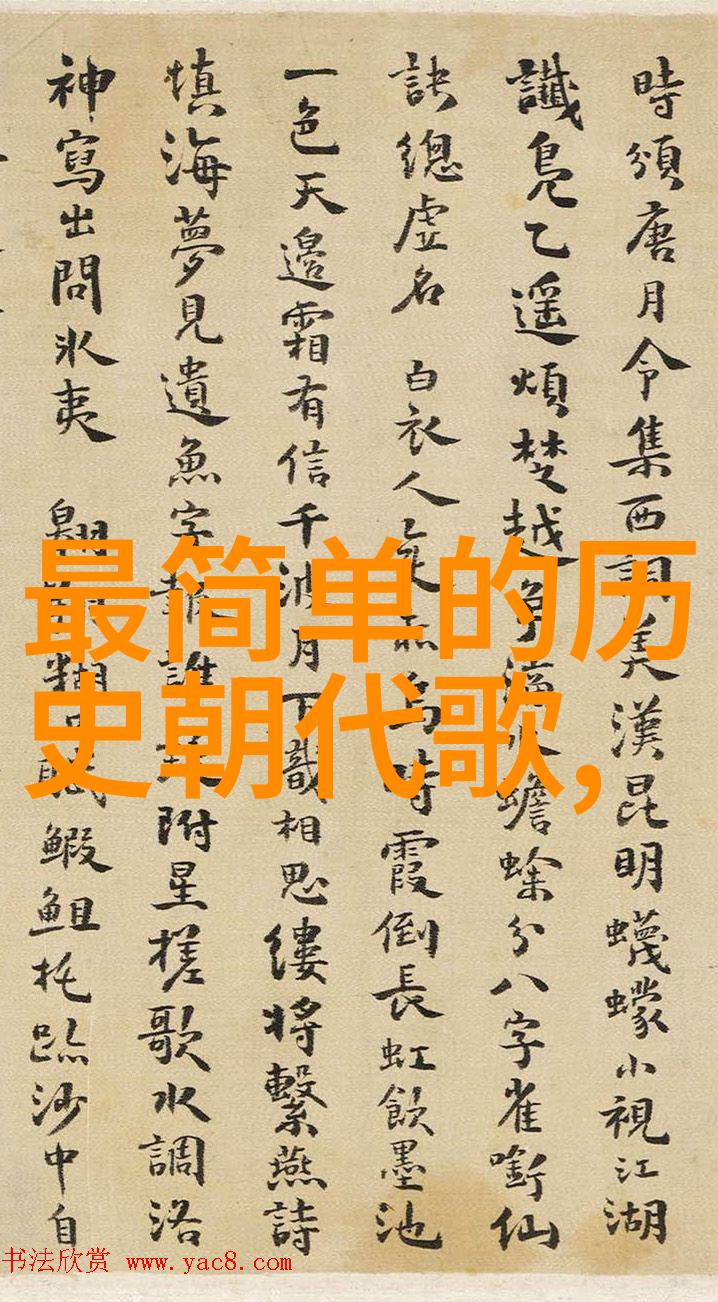 時頒唐月令集西調美漢昆明蠛蠓小視江湖
讖鳧乙遥煩楚越
蟾蜍分八字雀銜仙
訣總虚名 白衣人
烏時霞倒長虹飲墨池
一色天邊霜有信千波月下識相思縷將繫燕詩
填海夢見遺魚字
附星槎歌水調洛
神寫出問冰夷
鰕鮏托跡沙中自
最简单的历
史朝代歌,
书法欣赏 www.yac8.com